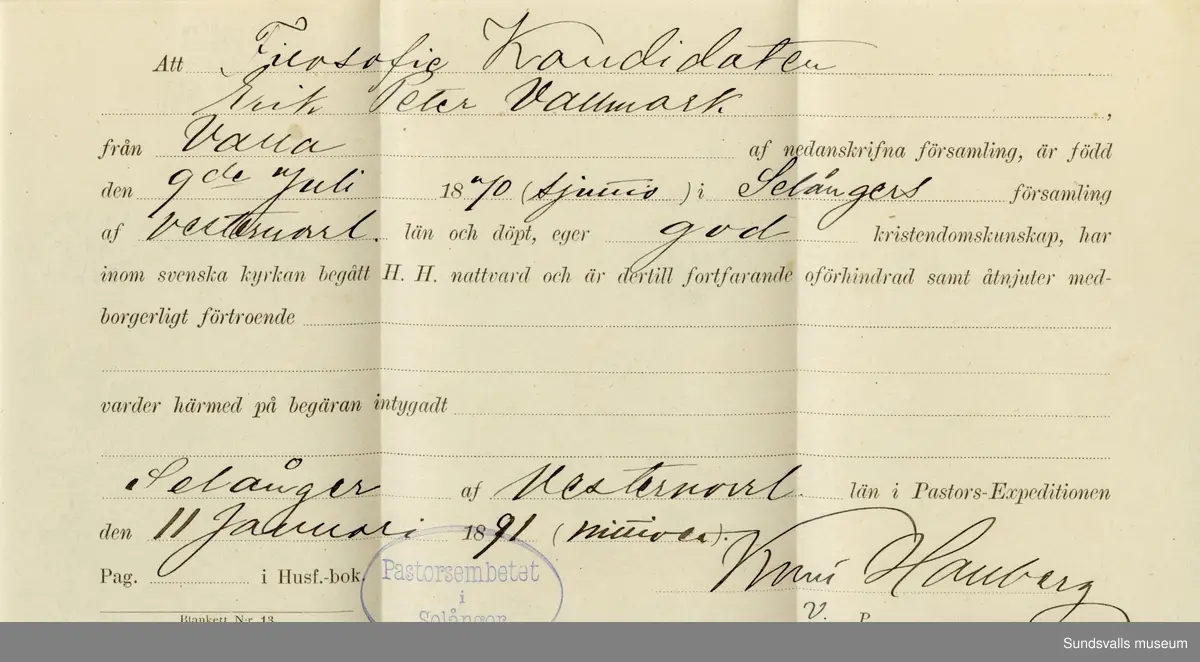 Att Filosofie Kandidaten
Erik Peter Vallmark,
från Valla af nedanskrifna församling, är född
den 9de Juli 1870 (sjuttio) i Selångers församling
af Vesternorrl. län och döpt, eger god kristendomskunskap, har
inom svenska kyrkan begått H. H. nattvard och är dertill fortfarande oförhindrad samt åtnjuter med-
borgerligt förtroende
varder härmed på begäran intygadt
Selånger af Vesternorrl. län i Pastors-Expeditionen
den 11 Januari 1891 (nittioen).
Pag. i Husf.-bok.
Hamberg
Pastorsembetet
i
Selånger
V. P.
Blankett N:r 13
Sundsvalls museum